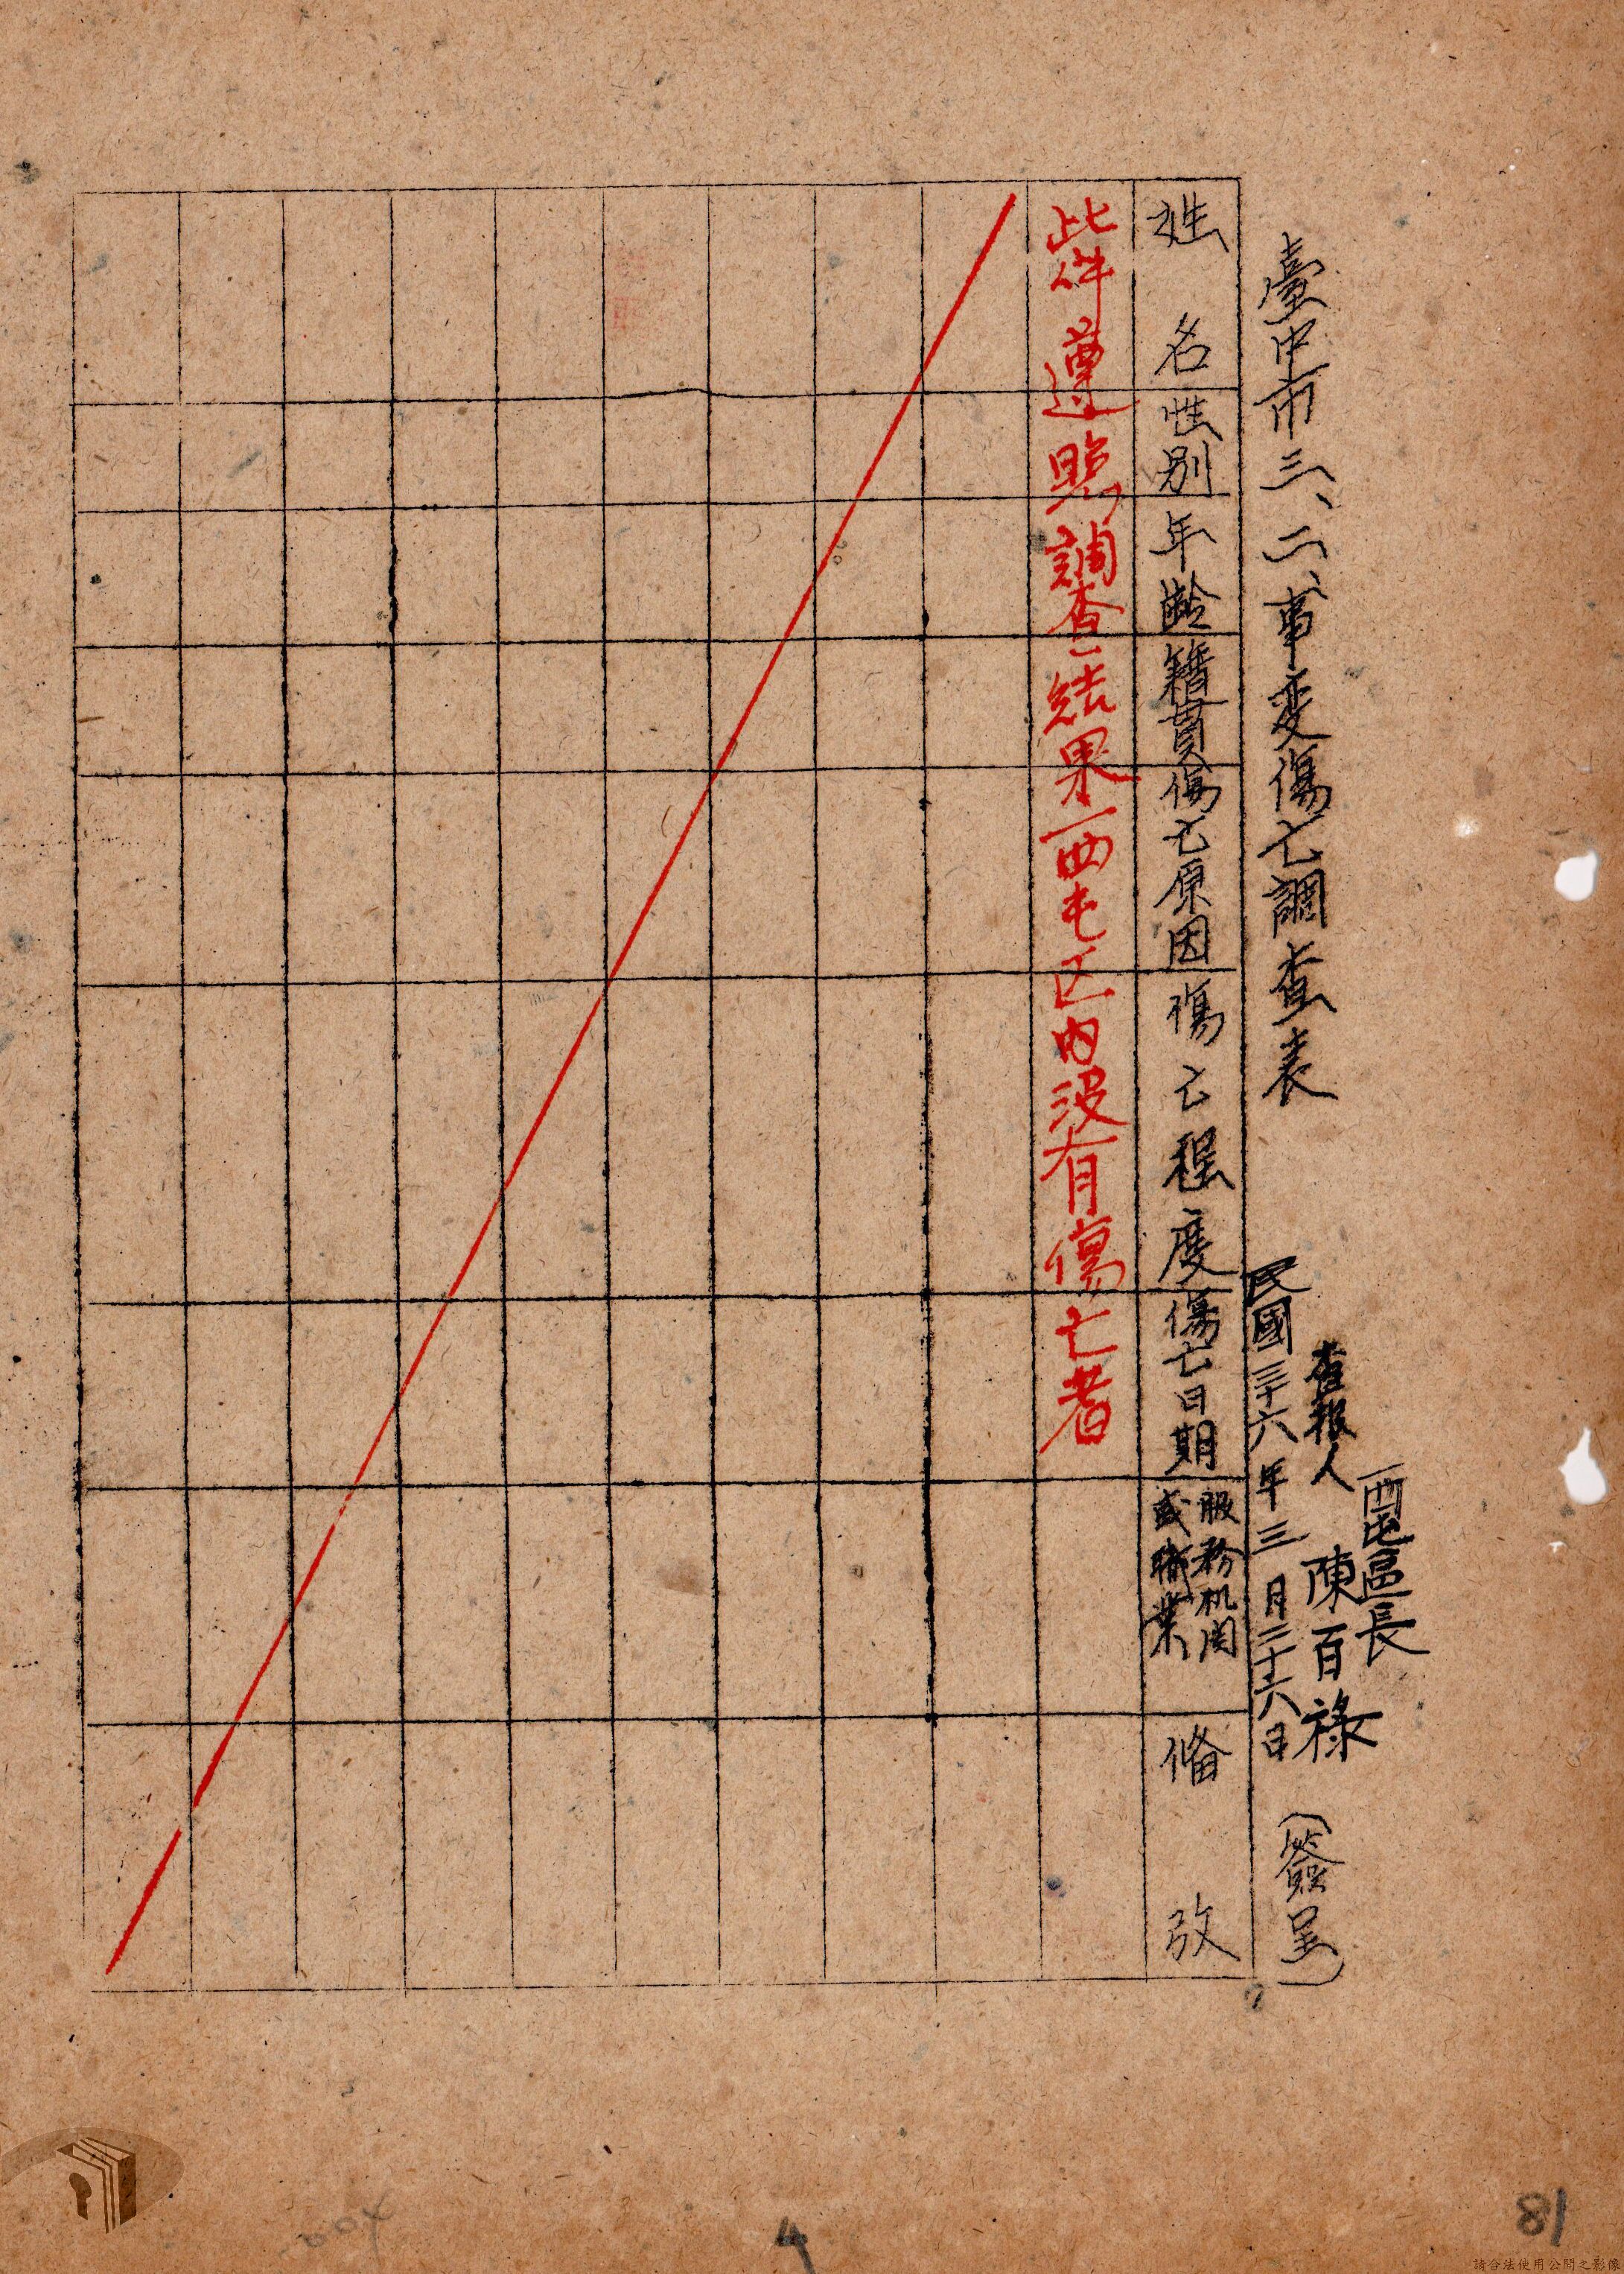 臺中市三、二、事变傷亡調查表
西屯區長
查報人 陳百祿 (簽呈)
民國三十六年三月二十六日
姓名
性别
年齡
籍貫
傷亡原因
傷亡程度
傷亡日期
服務机関
或職業
俻攷
此件遵照調查結果西屯区内没有傷亡者
4
81
請合法使用公開之影像